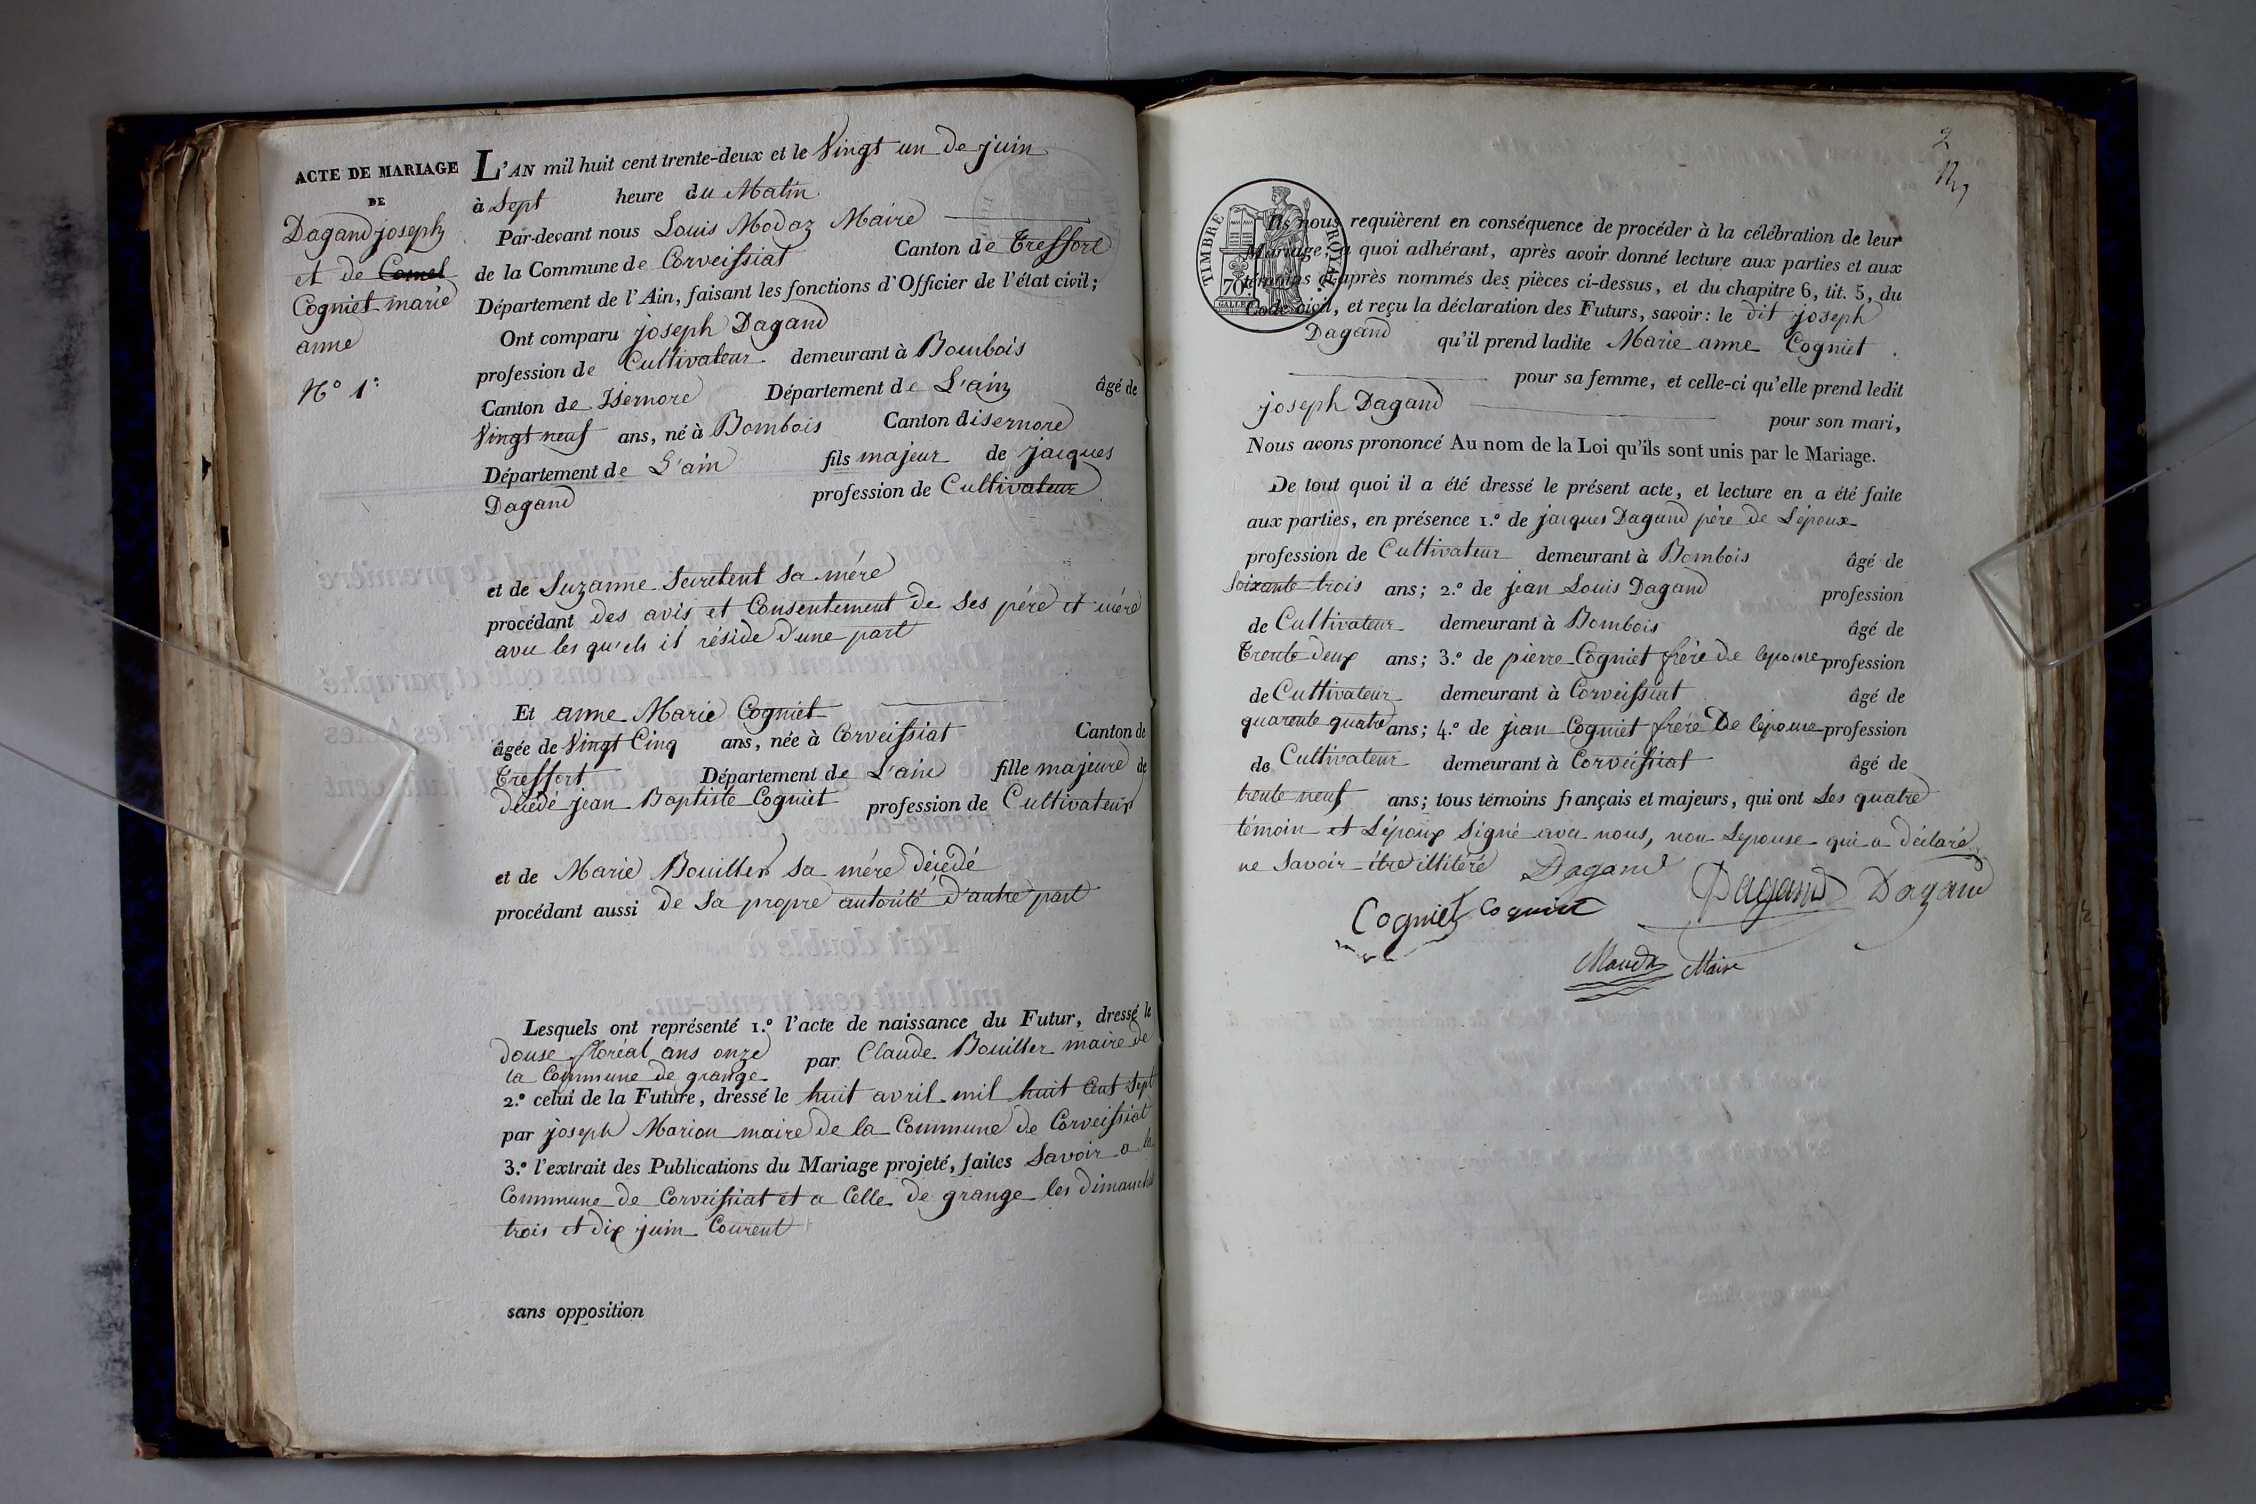 ACTE DE MARIAGE
DE
Dagand joseph
et de Comel
Cogniet marie
anne
N.o 1.
L'AN mil huit cent trente-deux et le Vingt un de juin
à Sept heure du Matin
Par-devant nous Louis Modaz Maire
de la Commune de Corveissiat Canton de Treffort
Département de l'Ain, faisant les fonctions d'Officier de l'état civil;
Ont comparu joseph Dagand
profession de Cultivateur demeurant à Bombois
Canton de Isernore Département de L'ain âgé de
Vingt neuf ans, né à Bombois Canton disernore
Département de L'ain fils majeur de jacques
Dagand profession de Cultivateur
et de Suzanne sa mére
procédant des avis et Consentement de Ses pére et mére
avec les quels il réside d'une part
Et anne Marie Cogniet
âgée de Vingt Cinq ans, née à Corveissiat Canton de
Treffort Département de L'ain fille majeure de
décédé jean Baptiste Cogniet profession de Cultivateur
et de Marie Bouiller sa mére décédé
procédant aussi de Sa propre autorité d'autre part
Lesquels ont représenté 1.o l'acte de naissance du Futur, dressé le
douse floréal ans onze par Claude Bouiller maire de
la Commune de grange
2.o celui de la Future, dressé le huit avril mil huit Cent Sept
par joseph Marion maire de la Commune de Corveissiat
3.o l'extrait des Publications du Mariage projeté, faites Savoir a la
Commune de Corveissiat et a Celle de grange les dimanches
trois et dix juin Courent
sans opposition
2
TIMBRE ROYAL
70
Ils nous requièrent en conséquence de procéder à la célébration de leur
Mariage; à quoi adhérant, après avoir donné lecture aux parties et aux
témoins ci-après nommés des pièces ci-dessus, et du chapitre 6, tit. 5, du
Code civil, et reçu la déclaration des Futurs, savoir: le dit joseph
Dagand qu'il prend ladite Marie anne Cogniet
pour sa femme, et celle-ci qu'elle prend ledit
joseph Dagand pour son mari,
Nous avons prononcé Au nom de la Loi qu'ils sont unis par le Mariage.
De tout quoi il a été dressé le présent acte, et lecture en a été faite
aux parties, en présence 1.o de jacques Dagand pére de L'époux
profession de Cultivateur demeurant à Bombois âgé de
Soixante trois ans; 2.o de jean Louis Dagand profession
de Cultivateur demeurant à Bombois âgé de
Trente deux ans; 3.o de pierre Cogniet frére de lepouse profession
de Cultivateur demeurant à Corveissiat âgé de
quarente quatre ans; 4.o de jean Cogniet frére De lépouse profession
de Cultivateur demeurant à Corveissiat âgé de
trente neuf ans; tous témoins français et majeurs, qui ont Les quatre
témoin et L'époux Signé avec nous, non Lepouse qui a déclaré
ne Savoir être illitéré Dagand
Dagand Dagand
Cogniet Cogniet
Maire